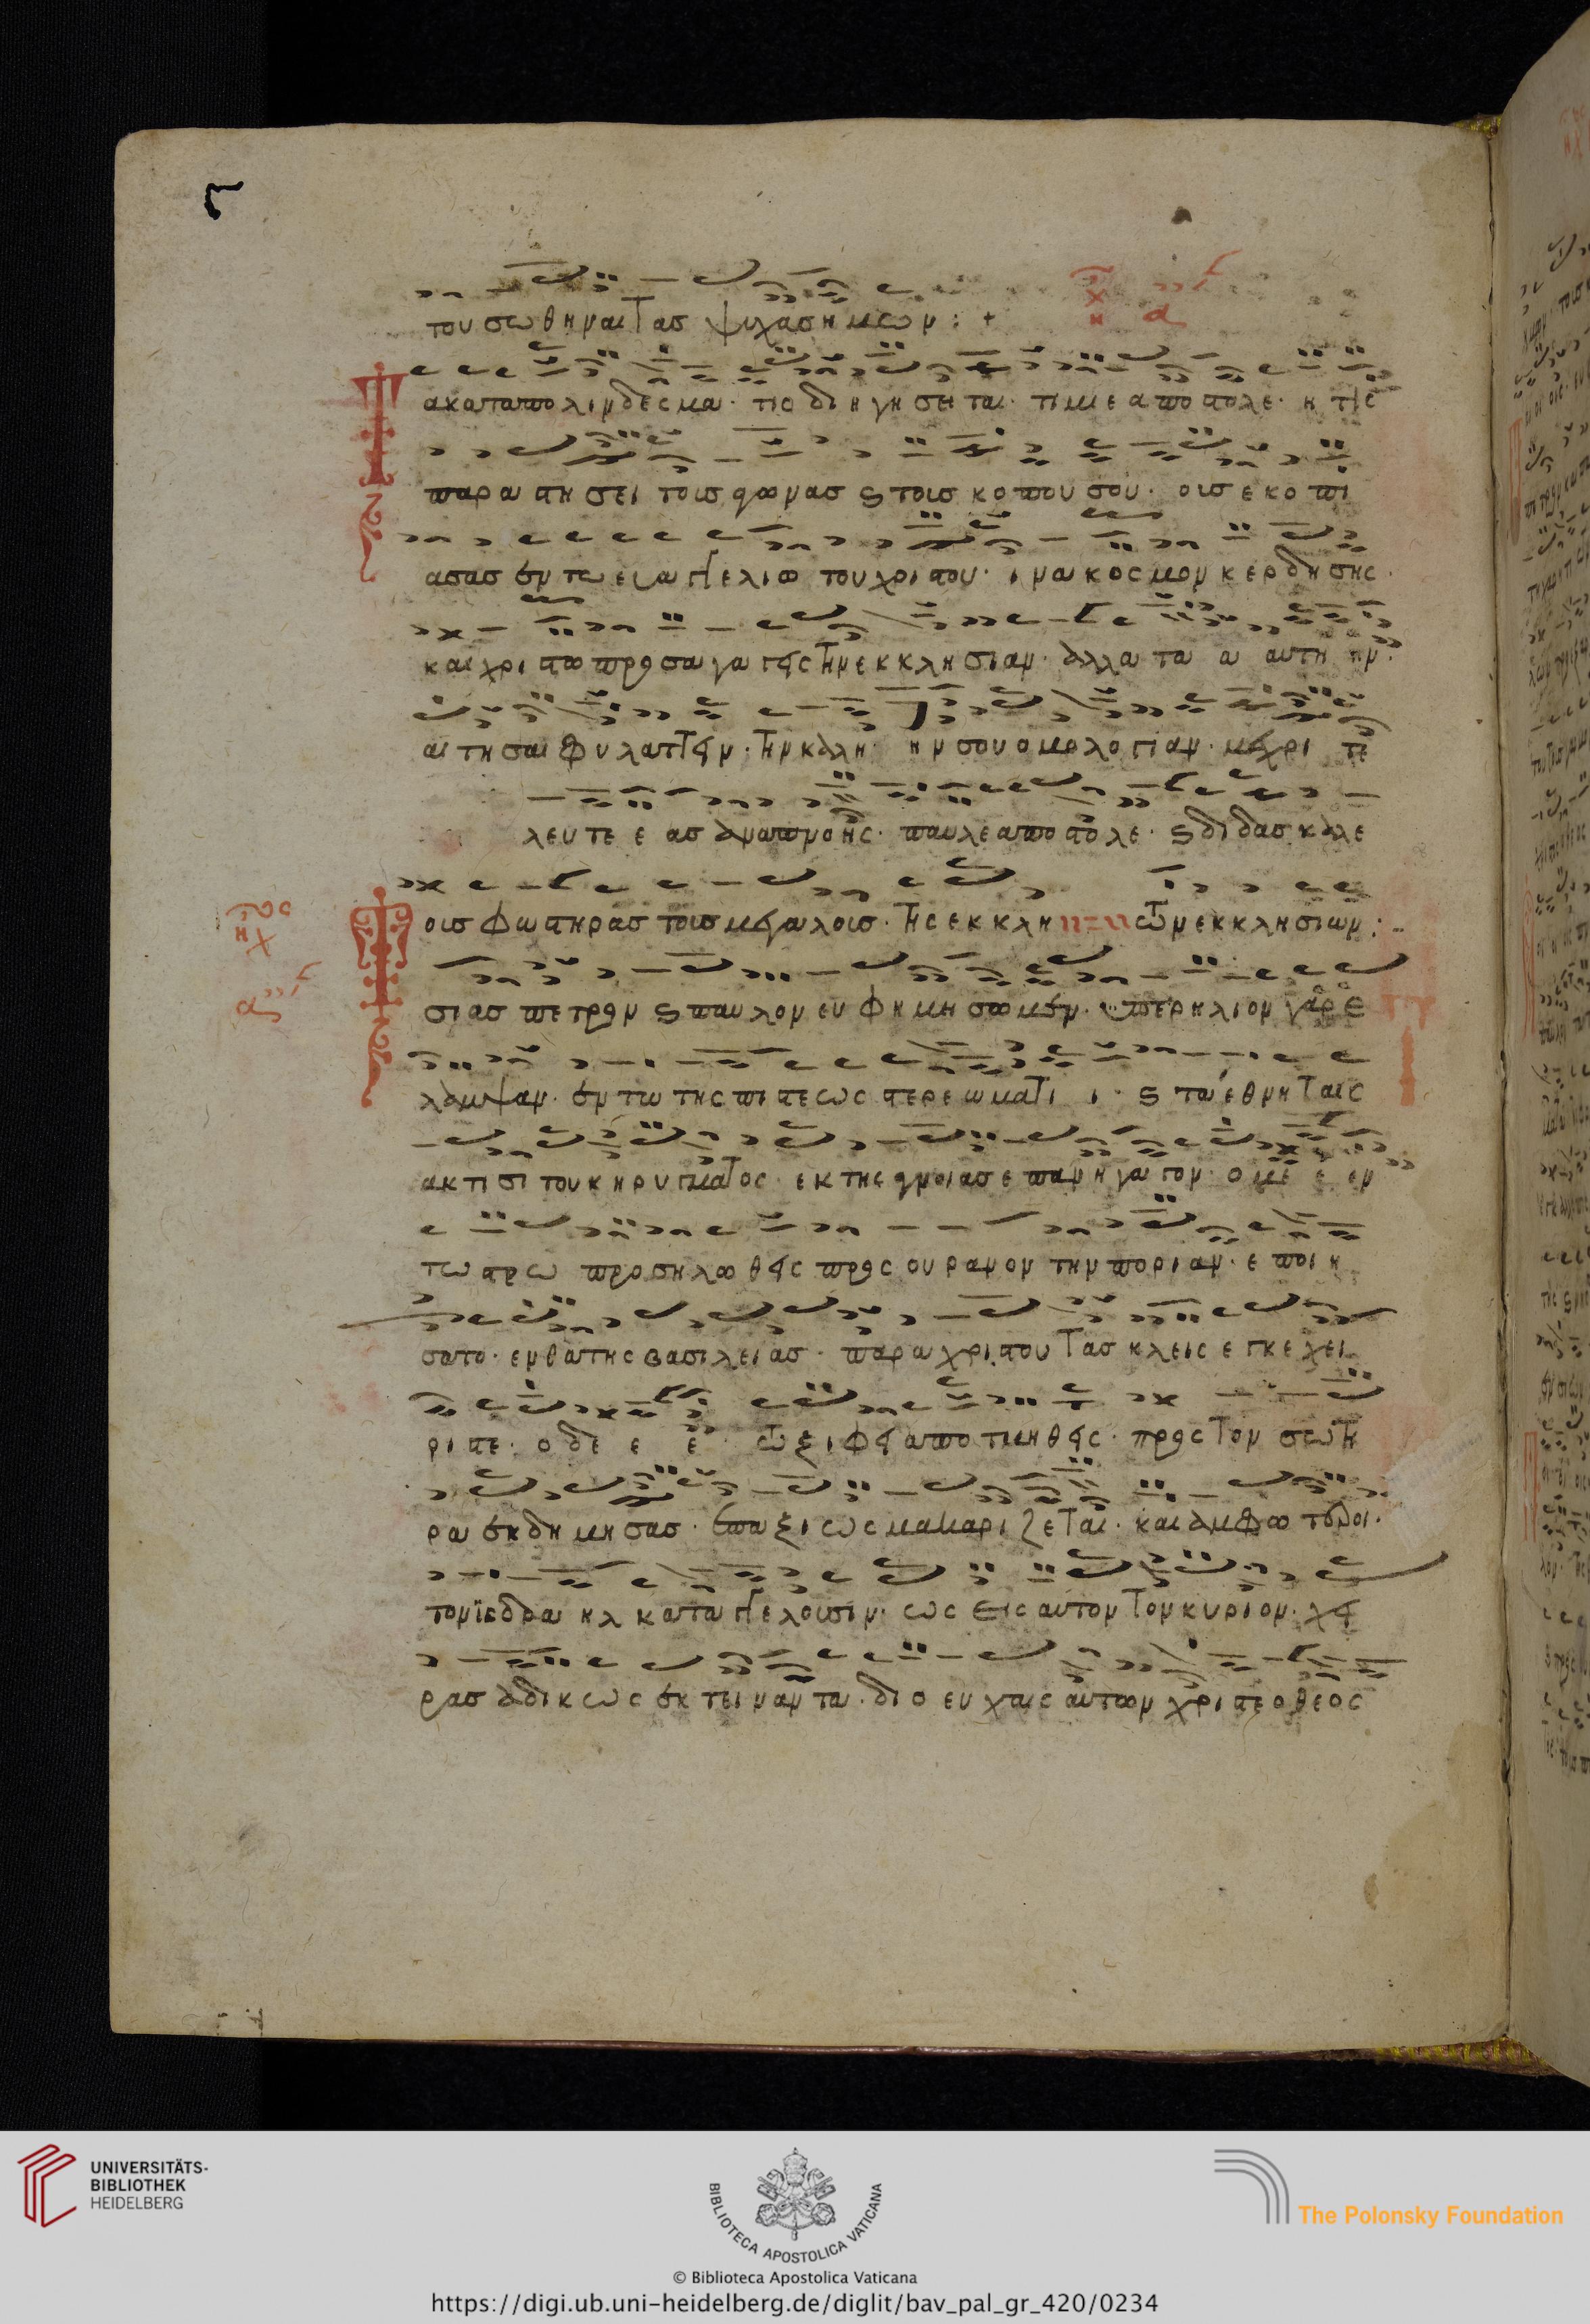 του σωθηναι τας ψυχας ημων : +
τα κατα πολιν δεσμα · τις διηγησεται · τιμιε αποστολε · η τις
παραστησει τους αγωνας ϗ τους κοπους σου · ους εκοπι
ασας εν τω ευαγγελιω του χριστου · ινα κοσμον κερδησης ·
και χριστω προσαγαγης την εκκλησιαν · αλλα τα α αυτη ην ·
αιτησαι φυλαττειν · την καλη ην σου ομολογιαν · μεχρι τε
λευτε ε ας αναπνοης · παυλε αποστολε · ϗ διδασκαλε
των εκκλησιων :
Τους φωστηρας τους μεγαλους · της εκκλη
σιας πετρον ϗ παυλον ευφημησωμεν · υπερ ηλιον γαρ ε
λαμψαν · εν τω της πιστεως στερεωματι ι · ϗ τα εθνη ταις
ακτισι του κηρυγματος · εκ της αγνοιας επανηγαγον · ο με ε εν
τω σταυρω προσηλωθεις προς ουρανον την πορειαν · εποιη
σατο · ενθα της βασιλειας · παρα χριστου τας κλεις εγκεχει
ρισται · ο δε ε ε τω ξιφει αποτμηθεις · προς τον σωτη
ρα εκδημησας · επαξιως μακαριζεται · και αμφω
τον ισραηλ καταγγελουσιν · ως εις αυτον τον κυριον · χει
ρας αδικως εκτειναντα · διο ευχαις αυτων χριστε ο θεος
UNIVERSITÄTS-
BIBLIOTHEK
HEIDELBERG
BIBLIOTECA APOSTOLICA VATICANA
The Polonsky Foundation
© Biblioteca Apostolica Vaticana
https://digi.ub.uni-heidelberg.de/diglit/bav_pal_gr_420/0234